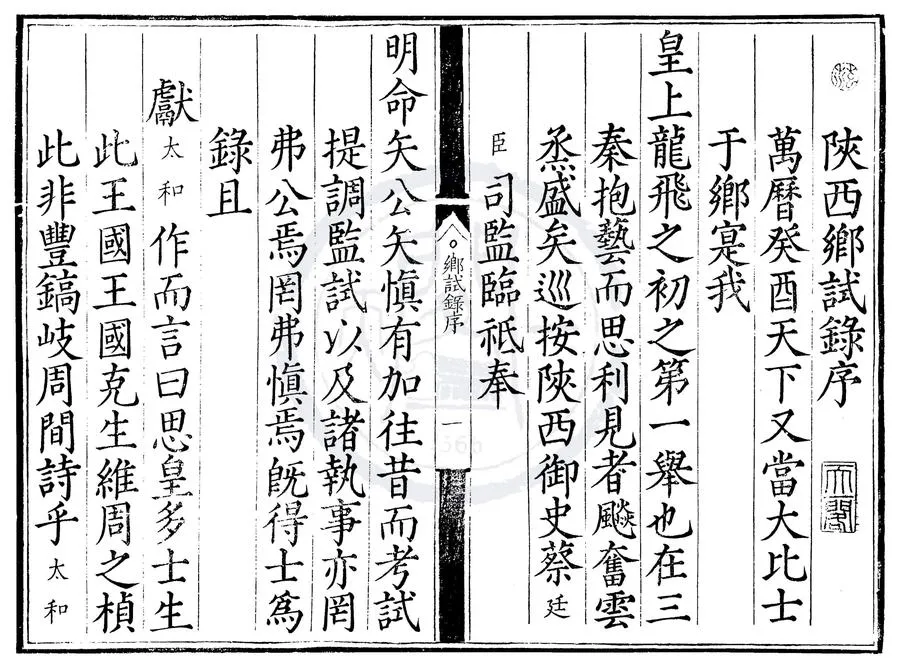 陝西鄉試錄序
萬曆癸酉天下又當大比士
于鄉寔我
皇上龍飛之初之第一舉也在三
秦抱藝而思利見者飈奮雲
烝盛矣巡按陝西御史蔡廷
臣司監臨祗奉
鄉試錄序 一
明命矢公矢慎有加往昔而考試
提調監試以及諸執事亦罔
弗公焉罔弗慎焉旣得士爲
錄且
獻太和作而言曰思皇多士生
此王國王國克生維周之楨
此非豐鎬岐周間詩乎太和